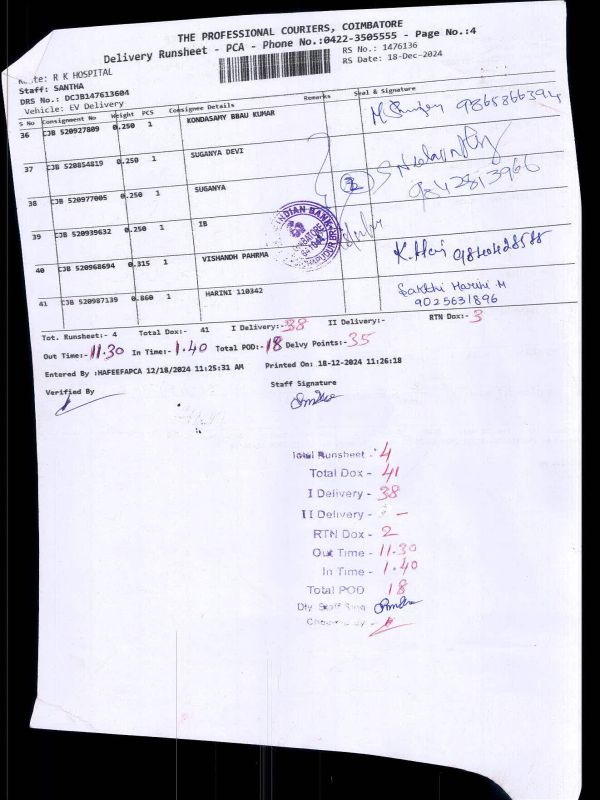 THE PROFESSIONAL COURIERS, COIMBATORE
Delivery Runsheet - PCA - Phone No.:0422-3505555 - Page No.:4
Route: R K HOSPITAL
RS No.: 1476136
Staff: SANTHA
RS Date: 18-Dec-2024
DRS No.: DCJB147613604
Vehicle: EV Delivery
S No Consignment No Weight PCS Consignee Details Remarks Seal & Signature
36 CJB 520927809 0.250 1 KONDASAMY BBAU KUMAR
37 CJB 520854819 0.250 1 SUGANYA DEVI
38 CJB 520977005 0.250 1 SUGANYA 2 9842813966
39 CJB 520939632 0.250 1 IB INDIAN BANK
40 CJB 520968694 0.315 1 VISHANDH PAHRMA K. Hari
41 CJB 520987139 0.860 1 HARINI 110342 Sakthi Harini M
9025631896
Tot. Runsheet:- 4 Total Dox:- 41 I Delivery:- 38 II Delivery:- RTN Dox:- 3
Out Time:- 11.30 In Time:- 1.40 Total POD:- 18 Delvy Points:- 35
Entered By :HAFEEFAPCA 12/18/2024 11:25:31 AM Printed On: 18-12-2024 11:26:18
Verified By Staff Signature
Total Runsheet - 4
Total Dox - 41
I Delivery - 38
II Delivery - –
RTN Dox - 2
Out Time - 11.30
In Time - 1.40
Total POD 18
Dly Staff Sing